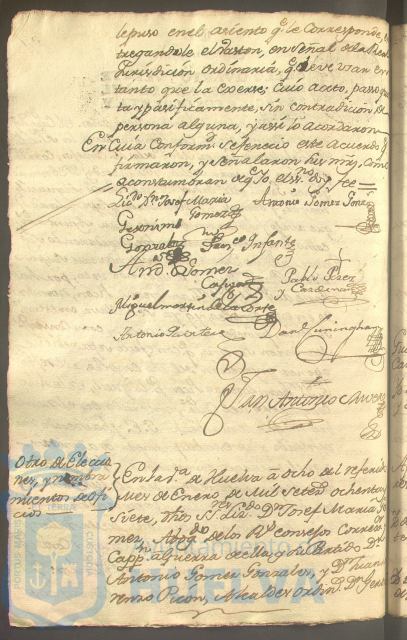 le puso en el asiento q.e le Corresponde,
tregandole el Baston, en Señal de la Real
Jurisdicion Ordinaria, q.e deve usar en
tanto que la exerse; cuio acto, paso qui
ta y pasificamente, sin contradicion de
persona alguna, y assi lo acordaron
En Cuia Conform.d se fenecio este acuerdo q.
firmaron, y señalaron sus mrds, como
acostumbran de q.e Yo, el ss.no doy fee =
Liz.do D.n Josef Maria
Gomez
Antonio Gomez Gonz
Geronimo
Gonzalez
Fran.co Infante
And. Gomez
Pablo Perez
y Cardenas
Miguel
Antonio
Dan.l Cuningham
Juan Antonio
Otro de Eleccio
nes, y nombra
mientos de ofi
cios
En la v.a de Huelva a ocho del referido
Mes de Enero de Mil Seteci.s ochenta y
Siete, Dhos S.res Liz.do D.n Josef Maria Go
mez, Abog.do de los R.s consejos Correxor.
Capp.n a Guerra de ella y su Partido D.n
Antonio Gomez Gonzalez, y D.n Juan
renzo Picon, Alcaldes ordin.s D.n Gero